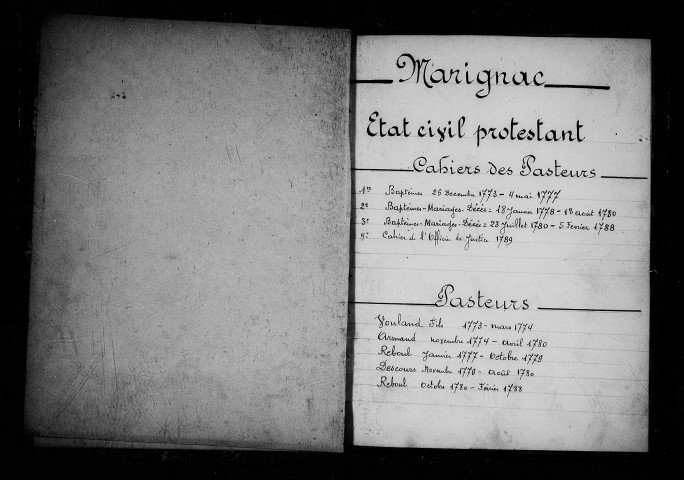 Marignac
Etat civil protestant
Cahiers des Pasteurs
1er Baptêmes 26 Decembre 1773 - 4 mai 1777
2e Baptêmes - Mariages - Décés = 18 Janvier 1778 - 18 août 1780
3e Baptêmes - Mariages - Décés = 23 Juillet 1780 - 5 Fevrier 1788
Cahier de l'Officier de Justice 1789
Pasteurs
Vouland Fils 1773 - mars 1774
Armand novembre 1774 - avril 1780
Reboul Janvier 1777 - Octobre 1779
Descours Novembre - Août 1780
Reboul Octobre 1780 - Février 1788